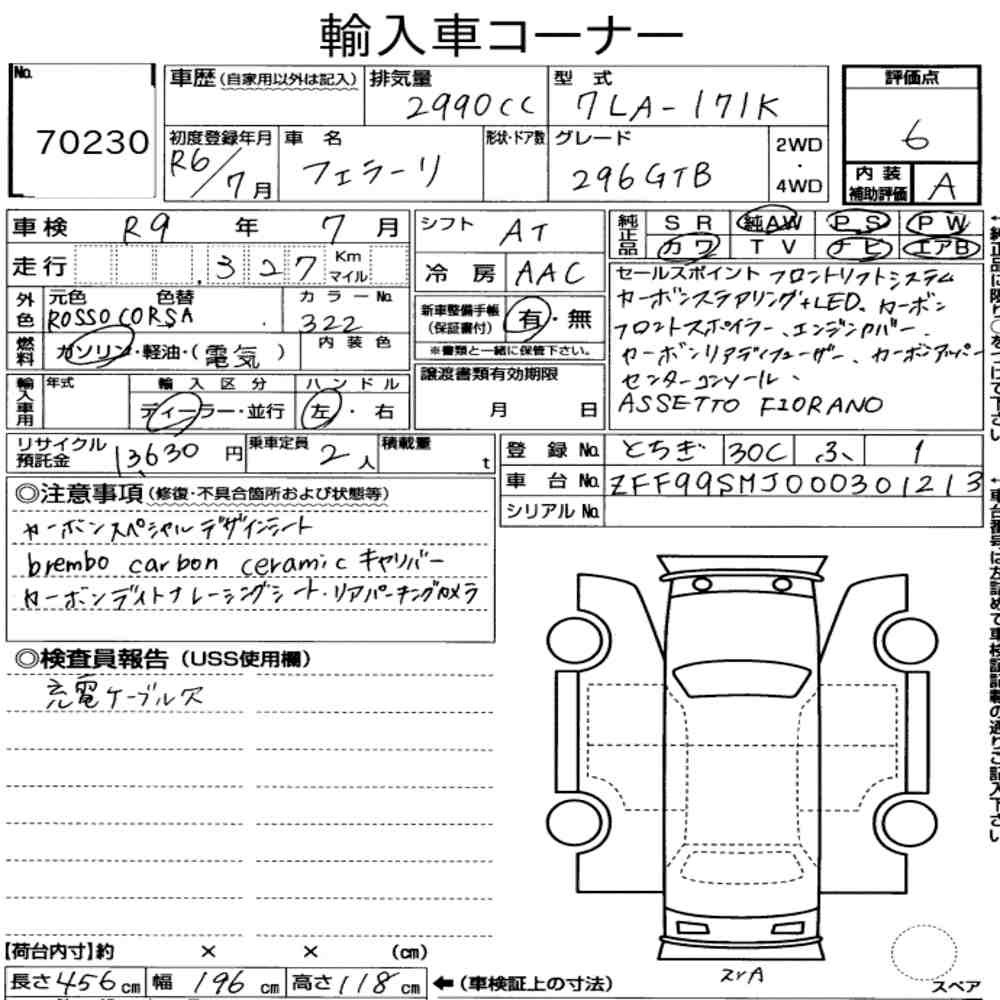 輸入車コーナー
No.
70230
車歴(自家用以外は記入)
排気量
2990cc
型 式
7LA-171K
評価点
6
内装補助評価
A
初度登録年月
R6/7月
車 名
フェラーリ
形状・ドア数
グレード
296GTB
2WD
・
4WD
車検 R9 年 7 月
シフト AT
純正品
SR 純AW PS PW
カワ TV ナビ エアB
走行 327 Km マイル
冷房 AAC
セールスポイント フロントリフトシステム
カーボンステアリング+LED、カーボン
フロントスポイラー、エンジンカバー、
カーボンリアディフューザー、カーボンアッパー
センターコンソール、
ASSETTO FIORANO
外色
元色 色替
ROSSO CORSA
カラーNo.
322
新車整備手帳
(保証書付)
有・無
※書類と一緒に保管下さい。
燃料
ガソリン・軽油・(電気)
内装色
輸入車用
年式
輸入区分
ディーラー・並行
ハンドル
左・右
譲渡書類有効期限
月 日
リサイクル預託金
13,630円
乗車定員
2人
積載量
t
登録No. とちぎ 30C ふ 1
車台No. ZFF99SMJ000301213
シリアルNo.
◎注意事項(修復・不具合箇所および状態等)
カーボンスペシャルデザインシート
brembo carbon ceramic キャリパー
カーボンデイトナレーシングシート・リアパーキングカメラ
◎検査員報告(USS使用欄)
充電ケーブル欠
【荷台内寸】約 × × (cm)
長さ456cm 幅196cm 高さ118cm
←(車検証上の寸法)
スペア